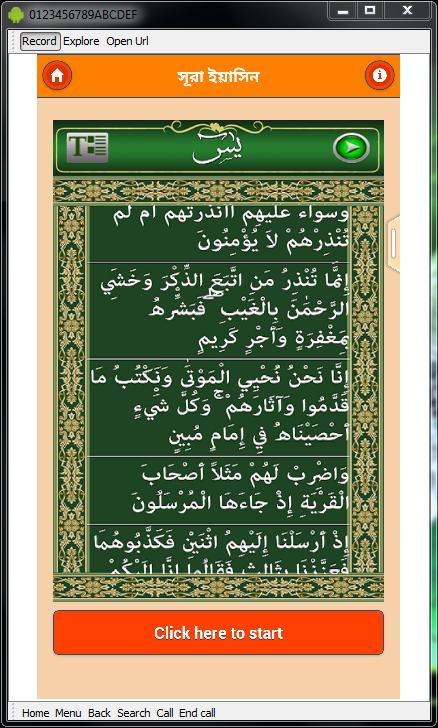 0123456789ABCDEF
Record Explore Open Url
সূরা ইয়াসিন
T
يس
وَسَوَاء عَلَيْهِمْ أَأَنذَرْتَهُمْ أَمْ لَمْ
تُنْذِرْهُمْ لاَ يُؤْمِنُونَ
إِنَّمَا تُنْذِرُ مَنِ اتَّبَعَ الذِّكْرَ وَخَشِيَ
الرَّحْمَٰنَ بِالْغَيْبِ ۖ فَبَشِّرْهُ
بِمَغْفِرَةٍ وَأَجْرٍ كَرِيمٍ
إِنَّا نَحْنُ نُحْيِي الْمَوْتَىٰ وَنَكْتُبُ مَا
قَدَّمُوا وَآثَارَهُمْ ۚ وَكُلَّ شَيْءٍ
أَحْصَيْنَاهُ فِي إِمَامٍ مُبِينٍ
وَاضْرِبْ لَهُمْ مَثَلاً أَصْحَابَ
الْقَرْيَةِ إِذْ جَاءَهَا الْمُرْسَلُونَ
إِذْ أَرْسَلْنَا إِلَيْهِمُ اثْنَيْنِ فَكَذَّبُوهُمَا
فَعَزَّزْنَا بِثَالِثٍ فَقَالُوا إِنَّا إِلَيْكُمْ
Click here to start
Home Menu Back Search Call End call